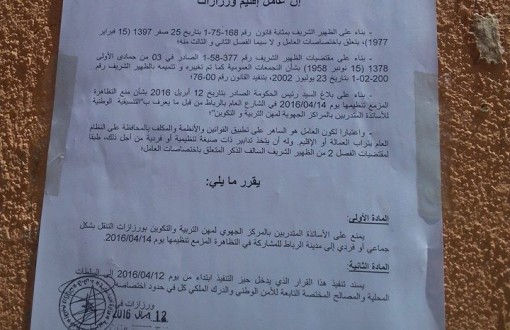 إن عامل إقليم ورزازات
- بناء على الظهير الشريف بمثابة قانون رقم 168-75-1 بتاريخ 25 صفر 1397 (15 فبراير
1977)، يتعلق باختصاصات العامل و لا سيما الفصل الثاني و الثالث منه؛
- بناء على مقتضيات الظهير الشريف رقم 377-58-1 الصادر في 03 من جمادى الأولى
1378 (15 نونبر 1958) بشأن التجمعات العمومية كما تم تغييره و تتميمه بالظهير الشريف رقم
200-02-1 بتاريخ 23 يوليوز 2002، بتنفيذ القانون رقم 00-76؛
- بناء على بلاغ السيد رئيس الحكومة الصادر بتاريخ 12 أبريل 2016 بشأن منع التظاهرة
المزمع تنظيمها يوم 2016/04/14 في الشارع العام بالرباط من قبل ما يعرف ب"التنسيقية الوطنية
للأساتذة المتدربين بالمراكز الجهوية لمهن التربية و التكوين"؛
- واعتبارا لكون العامل هو الساهر على تطبيق القوانين والأنظمة والمكلف بالمحافظة على النظام
العام بتراب العمالة أو الإقليم. وله أن يتخذ تدابير ذات صبغة تنظيمية أو فردية من أجل ذلك، طبقا
لمقتضيات الفصل 2 من الظهير الشريف السالف الذكر المتعلق باختصاصات العامل؛
يقرر ما يلي:
المادة الأولى:
يمنع على الأساتذة المتدربين بالمركز الجهوي لمهن التربية والتكوين بورزازات التنقل بشكل
جماعي أو فردي إلى مدينة الرباط للمشاركة في التظاهرة المزمع تنظيمها يوم 2016/04/14.
المادة الثانية:
يسند تنفيذ هذا القرار الذي يدخل حيز التنفيذ ابتداء من يوم 2016/04/12 إلى السلطات
المحلية والمصالح المختصة التابعة للأمن الوطني والدرك الملكي كل في حدود اختصاصه
ورزازات في
12 2016